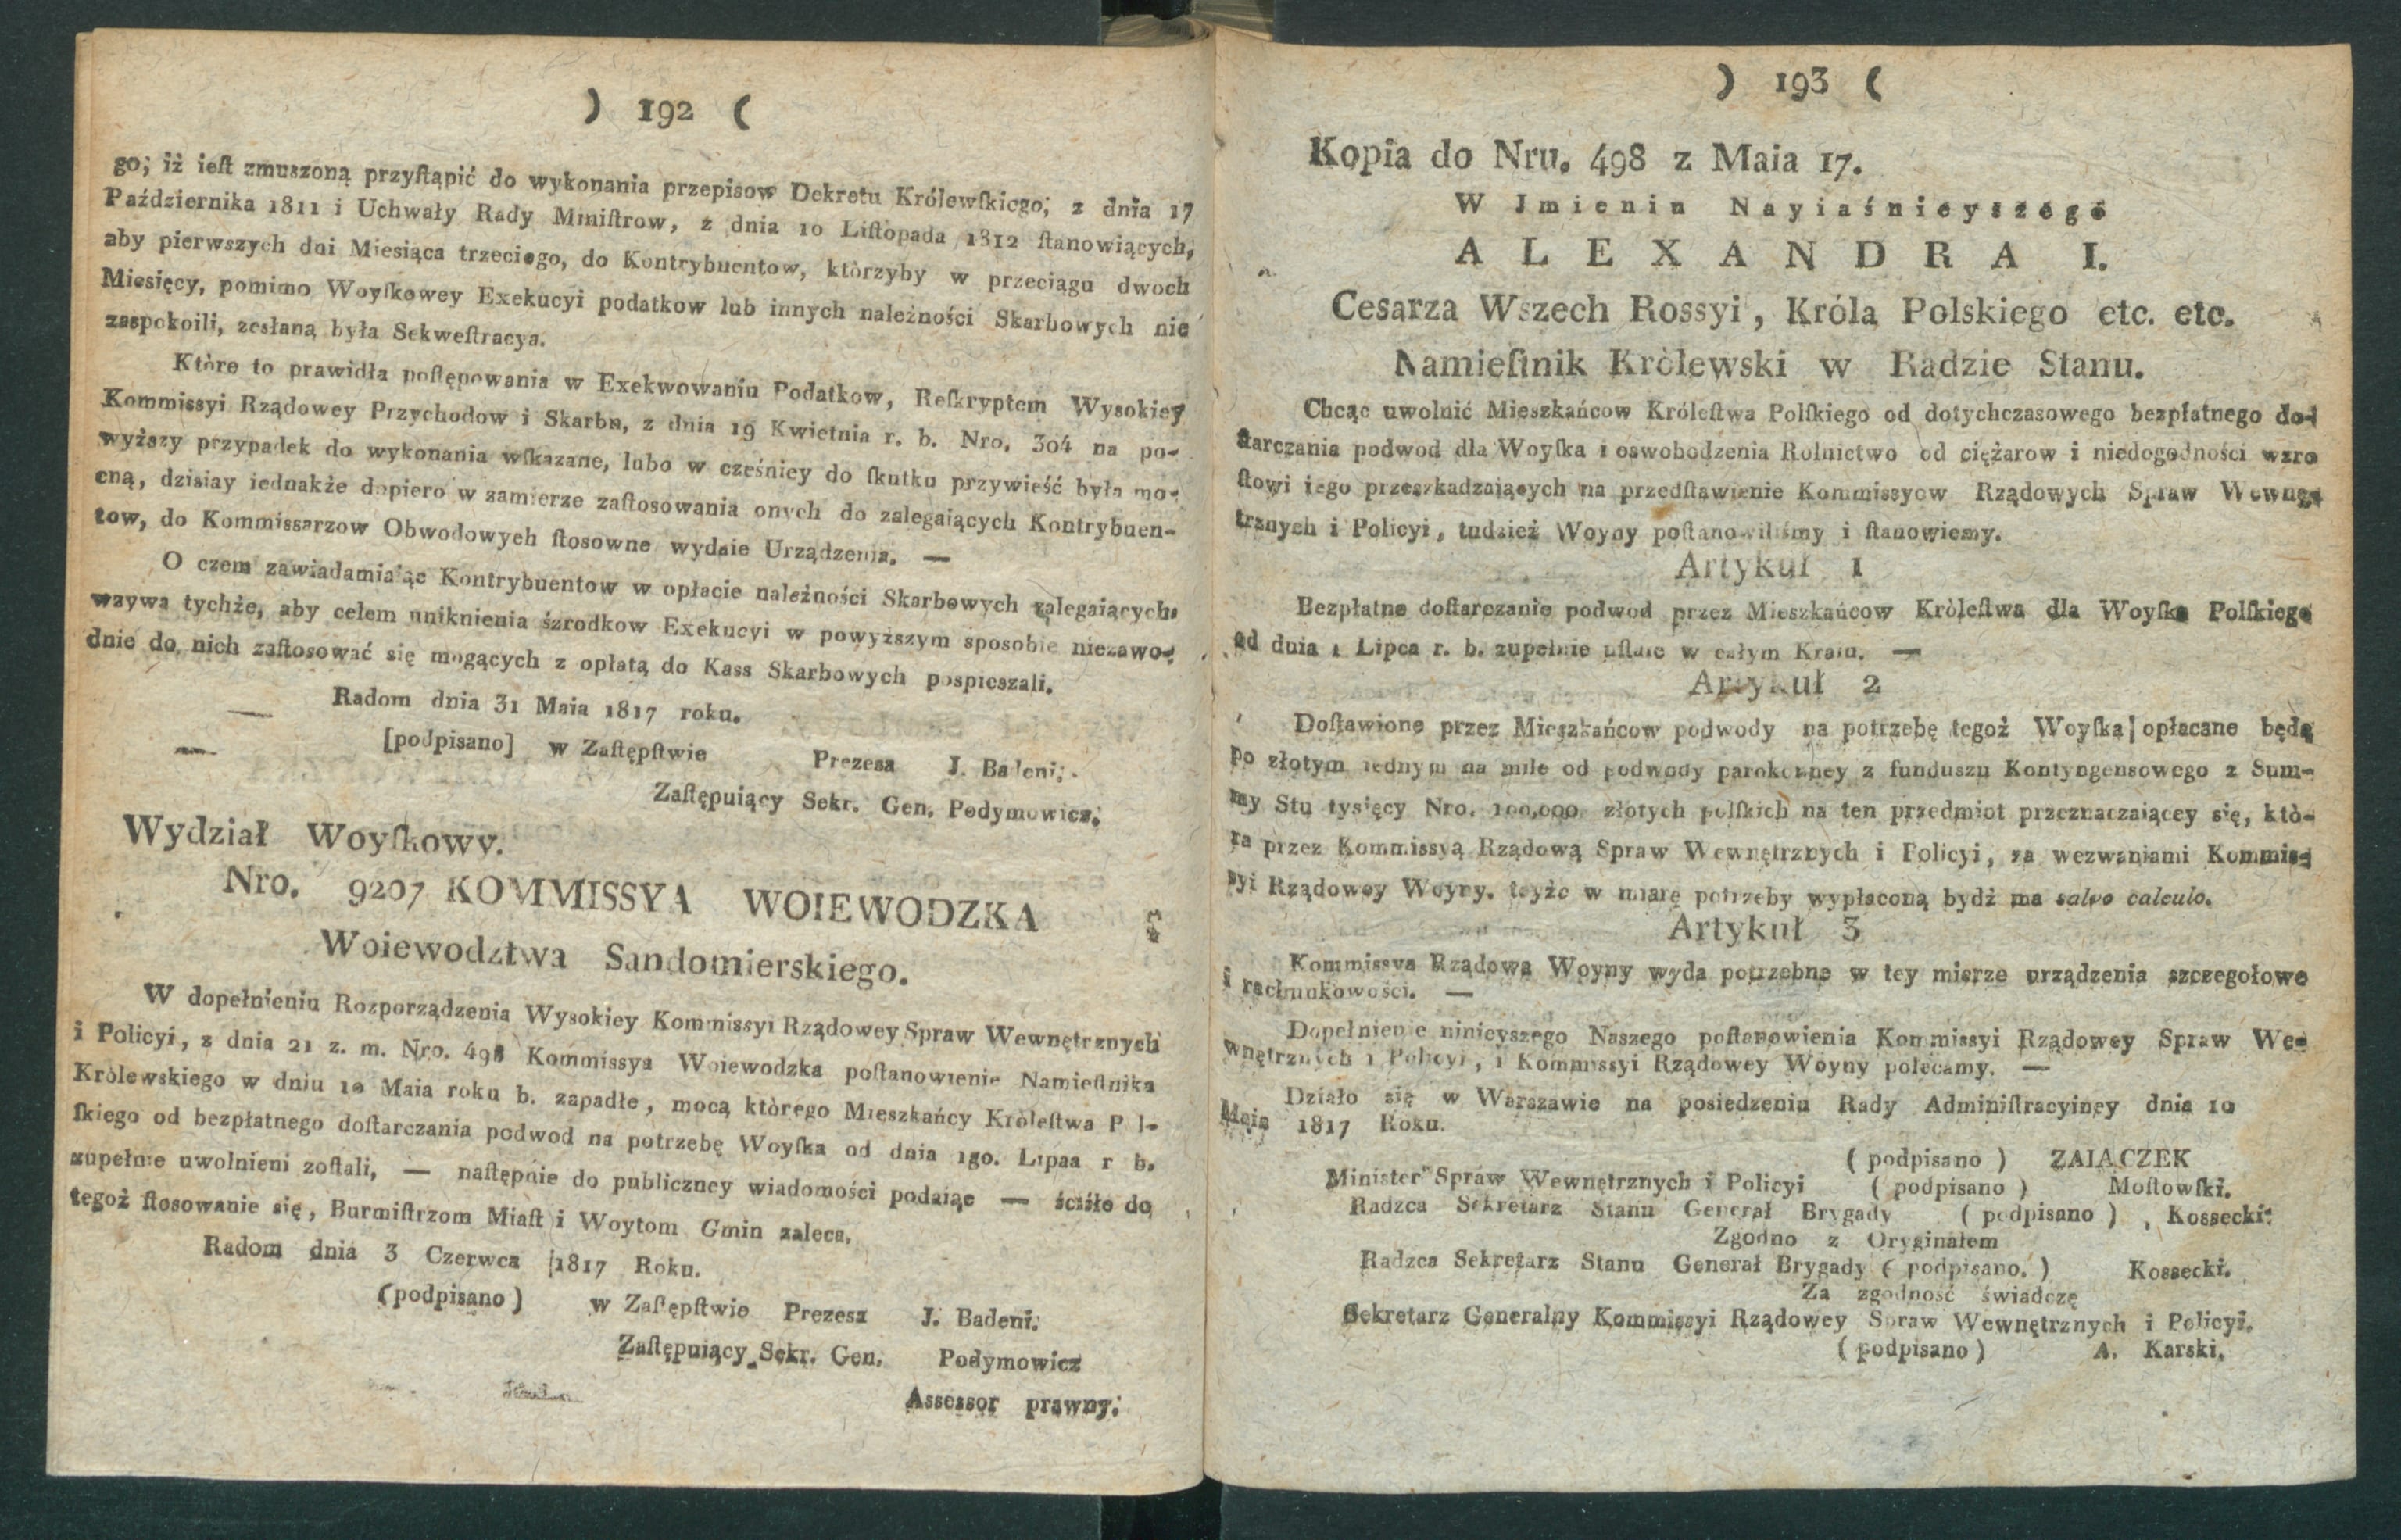 ) 192 (
go; iż ieſt zmuszoną przyſtąpić do wykonania przepisow Dekretu Królewſkiego; z dnia 17
Października 1811 i Uchwały Rady Miniſtrow, z dnia 10 Liſtopada 1812 ſtanowiących,
aby pierwszych dni Miesiąca trzeciego, do Kontrybuentow, którzyby w przeciągu dwoch
Miesięcy, pomimo Woyſkowey Exekucyi podatkow lub innych należności Skarbowych nie
zaspokoili, zesłaną była Sekweſtracya.
Które to prawidła poſtępowania w Exekwowaniu Podatkow, Reſkryptem Wysokiey
Kommissyi Rządowey Przychodow i Skarbu, z dnia 19 Kwietnia r. b. Nro. 304 na po-
wyższy przypadek do wykonania wſkazane, lubo w cześniey do ſkutku przywieść była mo-
cną, dzisiay iednakże dopiero w zamierze zaſtosowania onych do zalegaiących Kontrybuen-
tow, do Kommissarzow Obwodowych ſtosowne wydaie Urządzenia. —
O czem zawiadamiaiąc Kontrybuentow w opłacie należności Skarbowych zalegaiących,
wzywa tychże, aby celem uniknienia śzrodkow Exekucyi w powyższym sposobie niezawo-
dnie do nich zaſtosować się mogących z opłatą do Kass Skarbowych pospieszali.
Radom dnia 31 Maia 1817 roku.
[podpisano] w Zaſtępſtwie Prezesa J. Badeni,
Zaſtępuiący Sekr. Gen. Podymowicz.
Wydział Woyſkowy.
Nro. 9207 KOMMISSYA WOIEWODZKA
Woiewodztwa Sandomierskiego.
W dopełnieniu Rozporządzenia Wysokiey Kommissyi Rządowey Spraw Wewnętrznych
i Policyi, z dnia 21 z. m. Nro. 498 Kommissya Woiewodzka poſtanowienie Namieſtnika
Królewskiego w dniu 10 Maia roku b. zapadłe, mocą którego Mieszkańcy Króleſtwa P l-
ſkiego od bezpłatnego doſtarczania podwod na potrzebę Woyſka od dnia 1go. Lipaa r b.
zupełnie uwolnieni zoſtali, — naſtępnie do publiczney wiadomości podaiąc — ściśło do
tegoż ſtosowanie się, Burmiſtrzom Miaſt i Woytom Gmin zaleca.
Radom dnia 3 Czerwca 1817 Roku.
(podpisano) w Zaſtępſtwie Prezesa J. Badeni.
Zaſtępuiący Sekr. Gen. Podymowicz
Assessor prawny.
) 193 (
Kopia do Nru. 498 z Maia 17.
W Jmieniu Nayiaśnieyszego
ALEXANDRA I.
Cesarza Wszech Rossyi, Króla Polskiego etc. etc.
Namieſtnik Królewski w Radzie Stanu.
Chcąc uwolnić Mieszkańcow Króleſtwa Polſkiego od dotychczasowego bezpłatnego do-
ſtarczania podwod dla Woyſka i oswobodzenia Rolnictwo od ciężarow i niedogodności wzro
ſtowi iego przeszkadzaiących na przedſtawienie Kommissyow Rządowych Spraw Wewnę-
trznych i Policyi, tudzież Woyny poſtanowiliśmy i ſtanowiemy.
Artykuł 1
Bezpłatne doſtarczanie podwod przez Mieszkańcow Króleſtwa dla Woyſka Polſkiego
od dnia 1 Lipca r. b. zupełnie uſtaie w całym Kraiu. —
Artykuł 2
Doſtawione przez Mieszkańcow podwody na potrzebę tegoż Woyſka opłacane będą
po złotym iednym na mile od podwody parokonney z funduszu Kontyngensowego z Sum-
my Stu tysięcy Nro. 100,000 złotych polſkich na ten przedmiot przeznaczaiącey się, któ-
ra przez Kommissyą Rządową Spraw Wewnętrznych i Policyi, za wezwaniami Kommis-
syi Rządowey Woyny. teyże w miarę potrzeby wypłaconą bydź ma salvo calculo.
Artykuł 3
Kommissya Rządowa Woyny wyda potrzebne w tey mierze urządzenia szczegołowe
i rachunkowości. —
Dopełnienie ninieyszego Naszego poſtanowienia Kommissyi Rządowey Spraw We-
wnętrznych i Policyi, i Kommissyi Rządowey Woyny polecamy. —
Działo się w Warszawie na posiedzeniu Rady Adminiſtracyiney dnia 10
Maia 1817 Roku.
(podpisano) ZAIĄCZEK
Minister Spraw Wewnętrznych i Policyi (podpisano) Moſtowſki.
Radzca Sekretarz Stanu Generał Brygady (podpisano) Kossecki.
Zgodno z Oryginałem
Radzca Sekretarz Stanu Generał Brygady (podpisano.) Kossecki.
Za zgodność świadczę
Sekretarz Generalny Kommissyi Rządowey Spraw Wewnętrznych i Policyi.
(podpisano) A. Karski.